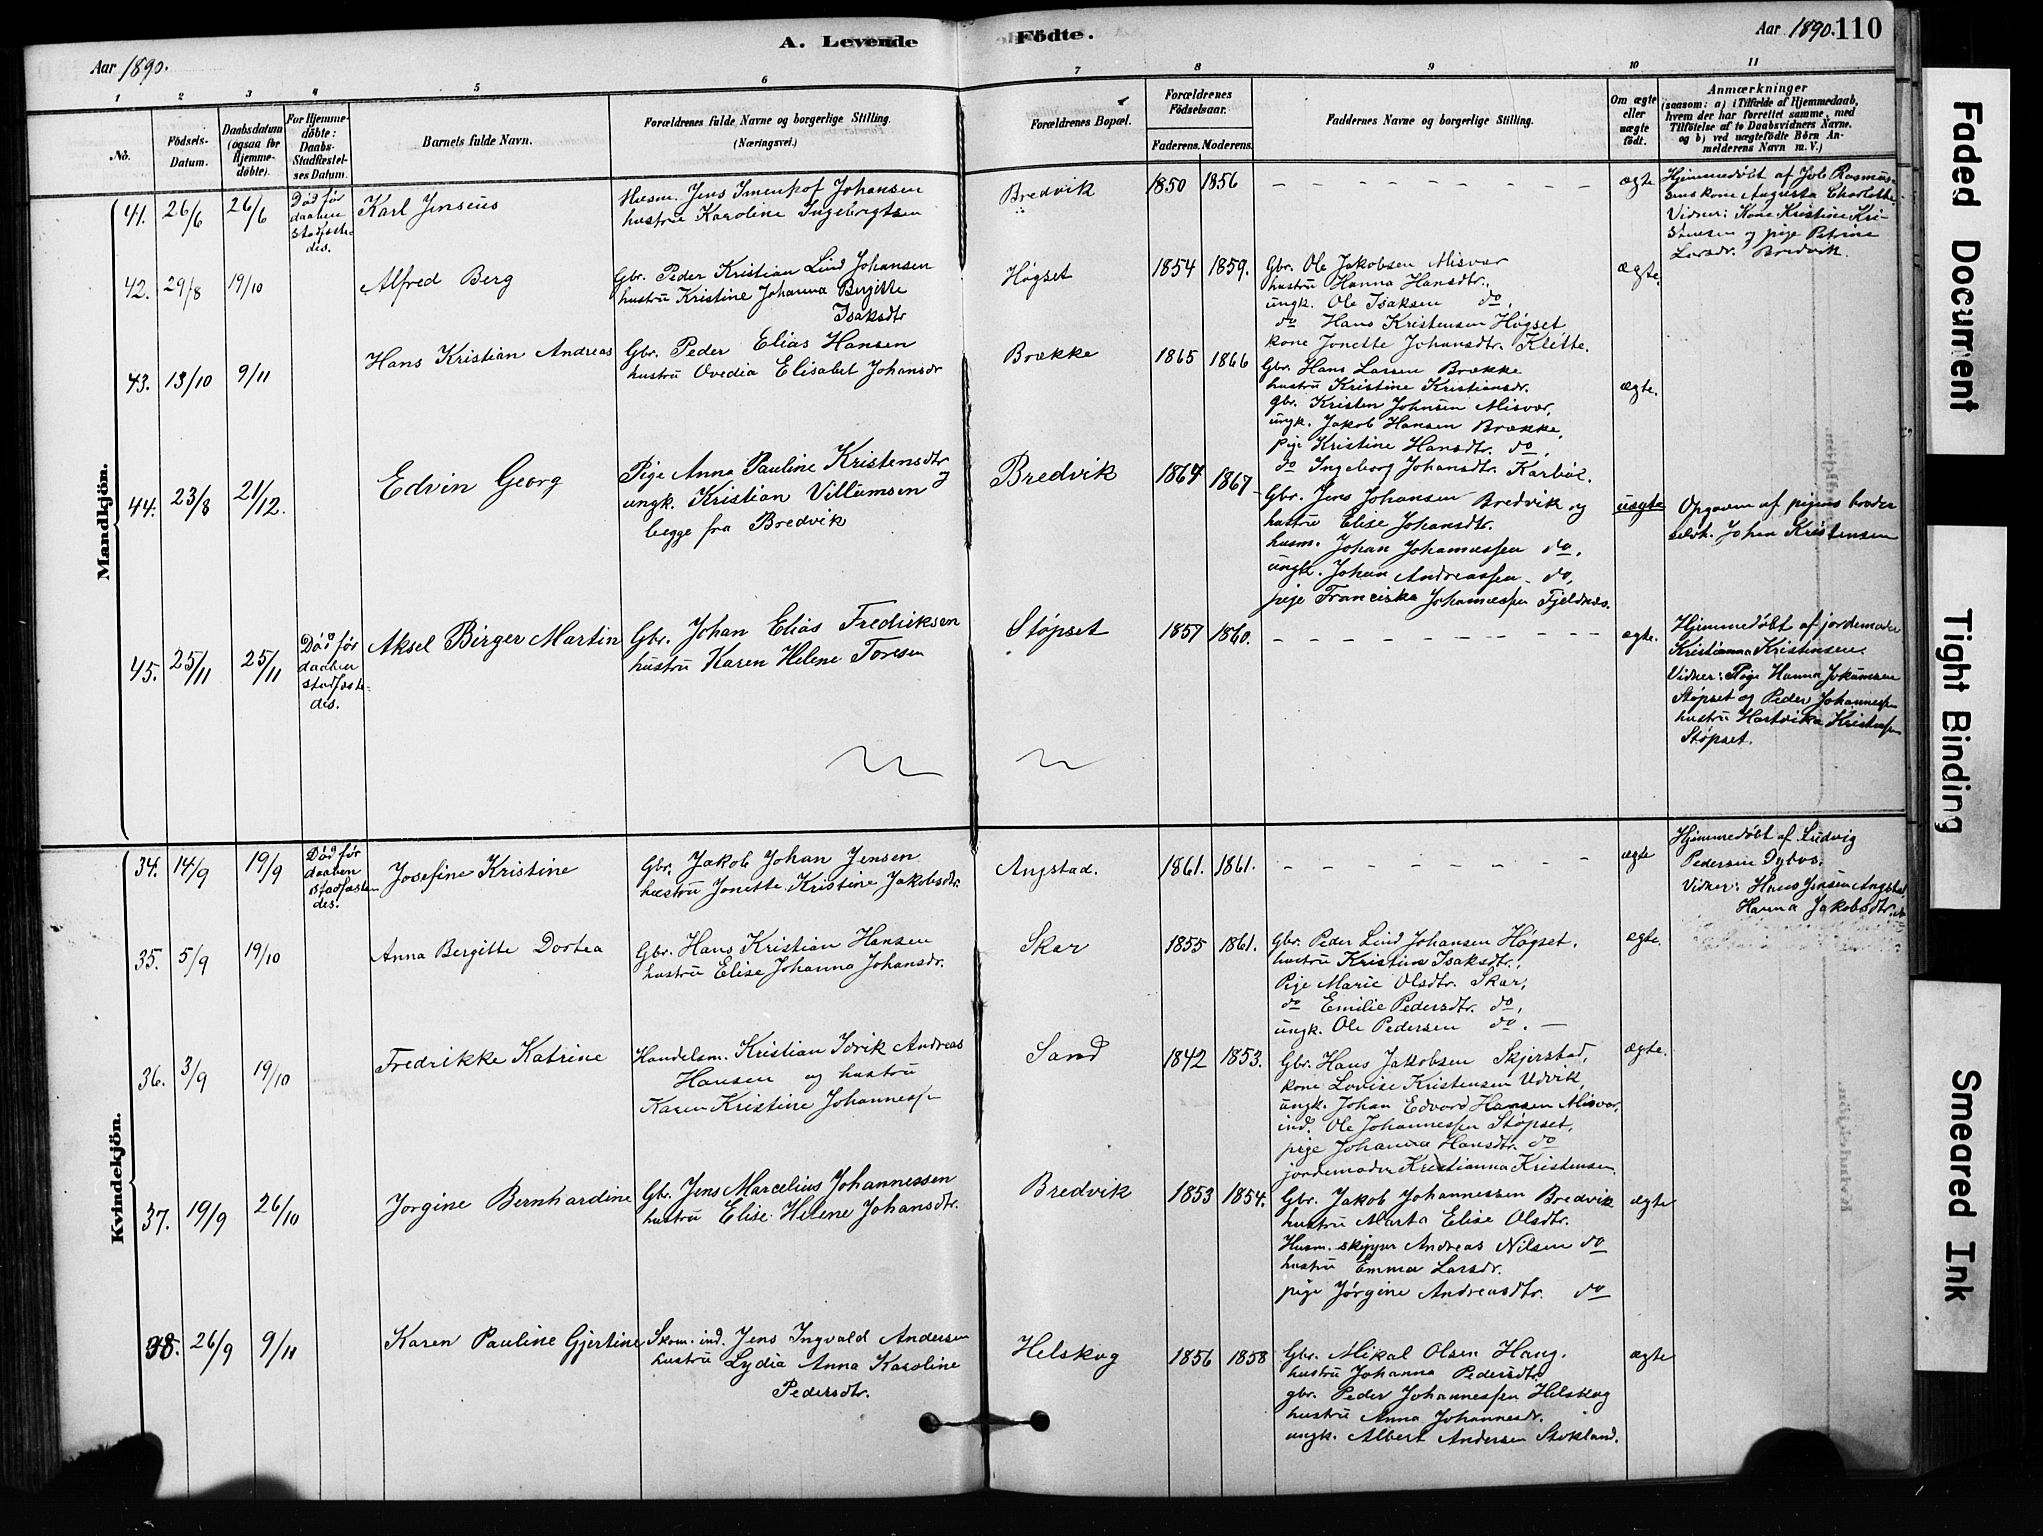 A. Levende Födte.
Aar 1890.
Aar 1890. 110
1 2 3 4 5 6 7 8 9 10 11
No.
Födsels-Datum.
Daabsdatum (ogsaa for Hjemmedöbte).
For Hjemmedöbte: Daabs-Stadfæstelses Datum.
Barnets fulde Navn.
Forældrenes fulde Navne og borgerlige Stilling. (Næringsvei.)
Forældrenes Bopæl.
Forældrenes Födselsaar.
Faderens. Moderens.
Faddernes Navne og borgerlige Stilling.
Om ægte eller uægte födt.
Anmærkninger (saasom: a) i Tilfælde af Hjemmedaab, hvem der har forrettet samme, med Tilföielse af to Daabsvidners Navne. og b) ved uægtefödte Börn Anmelderens Navn m. V.)
Mandkjön.
41. 26/6 26/6 Död før daaben stadfæstedes.
Karl Jenseus
Husm. Jens Johansen
hustru Karoline Ingebrigtsen
Bredvik 1850 1856
ægte
Hjemmedøbt af Joh. Rasmussens kone Augusta Charlotte.
Vidner: Kone Kristine Kristensen og pige Petrine
Larsdr. Bredvik.
42. 29/8 19/10
Alfred Berg
Gbr. Peder Kristian Lind Johansen
hustru Kristine Johanna Bergitte
Isaksdtr
Høgset 1854 1859.
Gbr. Ole Jakobsen Misvær
hustru Hanna Hansdtr.,
ungk. Ole Isaksen do,
do Hans Kristensen Høgset
kone Jonette Johansdtr. Klette.
ægte.
43. 13/10 9/11
Hans Kristian Andreas
Gbr. Peder Elias Hansen
hustru Ovedia Elisabet Johansdr
Brække 1865 1866
Gbr. Hans Larsen Brække
hustru Kristine Kristiansdr.
gbr. Kristen Johnsen Misvær,
ungk. Jakob Hansen Brække,
pige Kristine Hansdtr. do,
do Ingeborg Johansdtr. Karbøl.
ægte.
44. 23/8 21/12.
Edvin Georg
Pige Anna Pauline Kristensdtr og
ungk. Kristian Villumsen
begge fra Bredvik
Bredvik 1864 1867
Gbr. Jens Johansen Bredvik og
hustru Elise Johansdtr.
husm. Johan Johannessen do,
ungk. Johan Andreassen do,
pige Franciska Johannessen Fjeldnæs.
uægte
Opgaven af pigens broder
selvk. Johan Kristensen
45. 25/11 25/11 Död før daaben stadfæstedes.
Aksel Birger Martin
Gbr. Johan Elias Fredriksen
hustru Karen Helene Toresen
Støpset 1857 1860.
ægte.
Hjemmedøbt af jordemoder
Kristianna Kristensen.
Vidner: Pige Hanna Jokumsen
Støpset og Peder Johannessen
hustru Hartvika Kristensen
Støpset.
Kvindekjön.
34. 14/9 19/9 Död før daaben stadfæstedes.
Josefine Kristine
Gbr. Jakob Johan Jensen
hustru Jonette Kristine Jakobsdtr.
Angstad. 1861. 1861.
ægte
Hjemmedøbt af Ludvig
Pedersen
Vidner: Hans Jensen Angstad
Hanna Jakobsdtr. do
35. 5/9 19/10
Anna Bergitte Dortea
Gbr. Hans Kristian Hansen
hustru Elise Johanna Johansdr.
Skar 1855 1861.
Gbr. Peder Lind Johansen Høgset,
hustru Kristine Isaksdtr.,
Pige Marie Olsdtr. Skar,
do Emilie Pedersdtr. do,
ungk. Ole Pedersen do.
ægte.
36. 3/9 19/10
Fredrikke Katrine
Handelsm. Kristian Andreas
Hansen og hustru
Karen Kristine Johannessen
Sand 1842 1853.
Gbr. Hans Jakobsen Skjerstad,
kone Lovise Kristensen Udvik,
ungk. Johan Edvard Hansen Misvær,
ind. Ole Johannessen Støpset,
pige Johanna Hansdtr. do
jordemoder Kristianna Kristensen.
ægte.
37. 19/9 26/10
Jorgine Bernhardine
Gbr. Jens Marcelius Johannessen
hustru Elise Helene Johansdtr.
Bredvik 1853 1854.
Gbr. Jakob Johannessen Bredvik
hustru Marta Elise Olsdtr.
Husm. skipper Andreas Nilsen do
hustru Emma Larsdr.
pige Jørgine Andreasdtr. do
ægte
38. 26/9 9/11
Karen Pauline Gjertine
Skom. ind. Jens Ingvald Andersen
hustru Lydia Anna Karoline
Pedersdtr.
Helskog 1856 1858
Gbr. Mikal Olsen Haug.
hustru Johanna Pedersdtr
gbr. Peder Johannessen Helskog
hustru Anna Johannesdr.
ungk. Albert Andersen Stokland.
ægte
Faded Document
Tight Binding
Smeared Ink